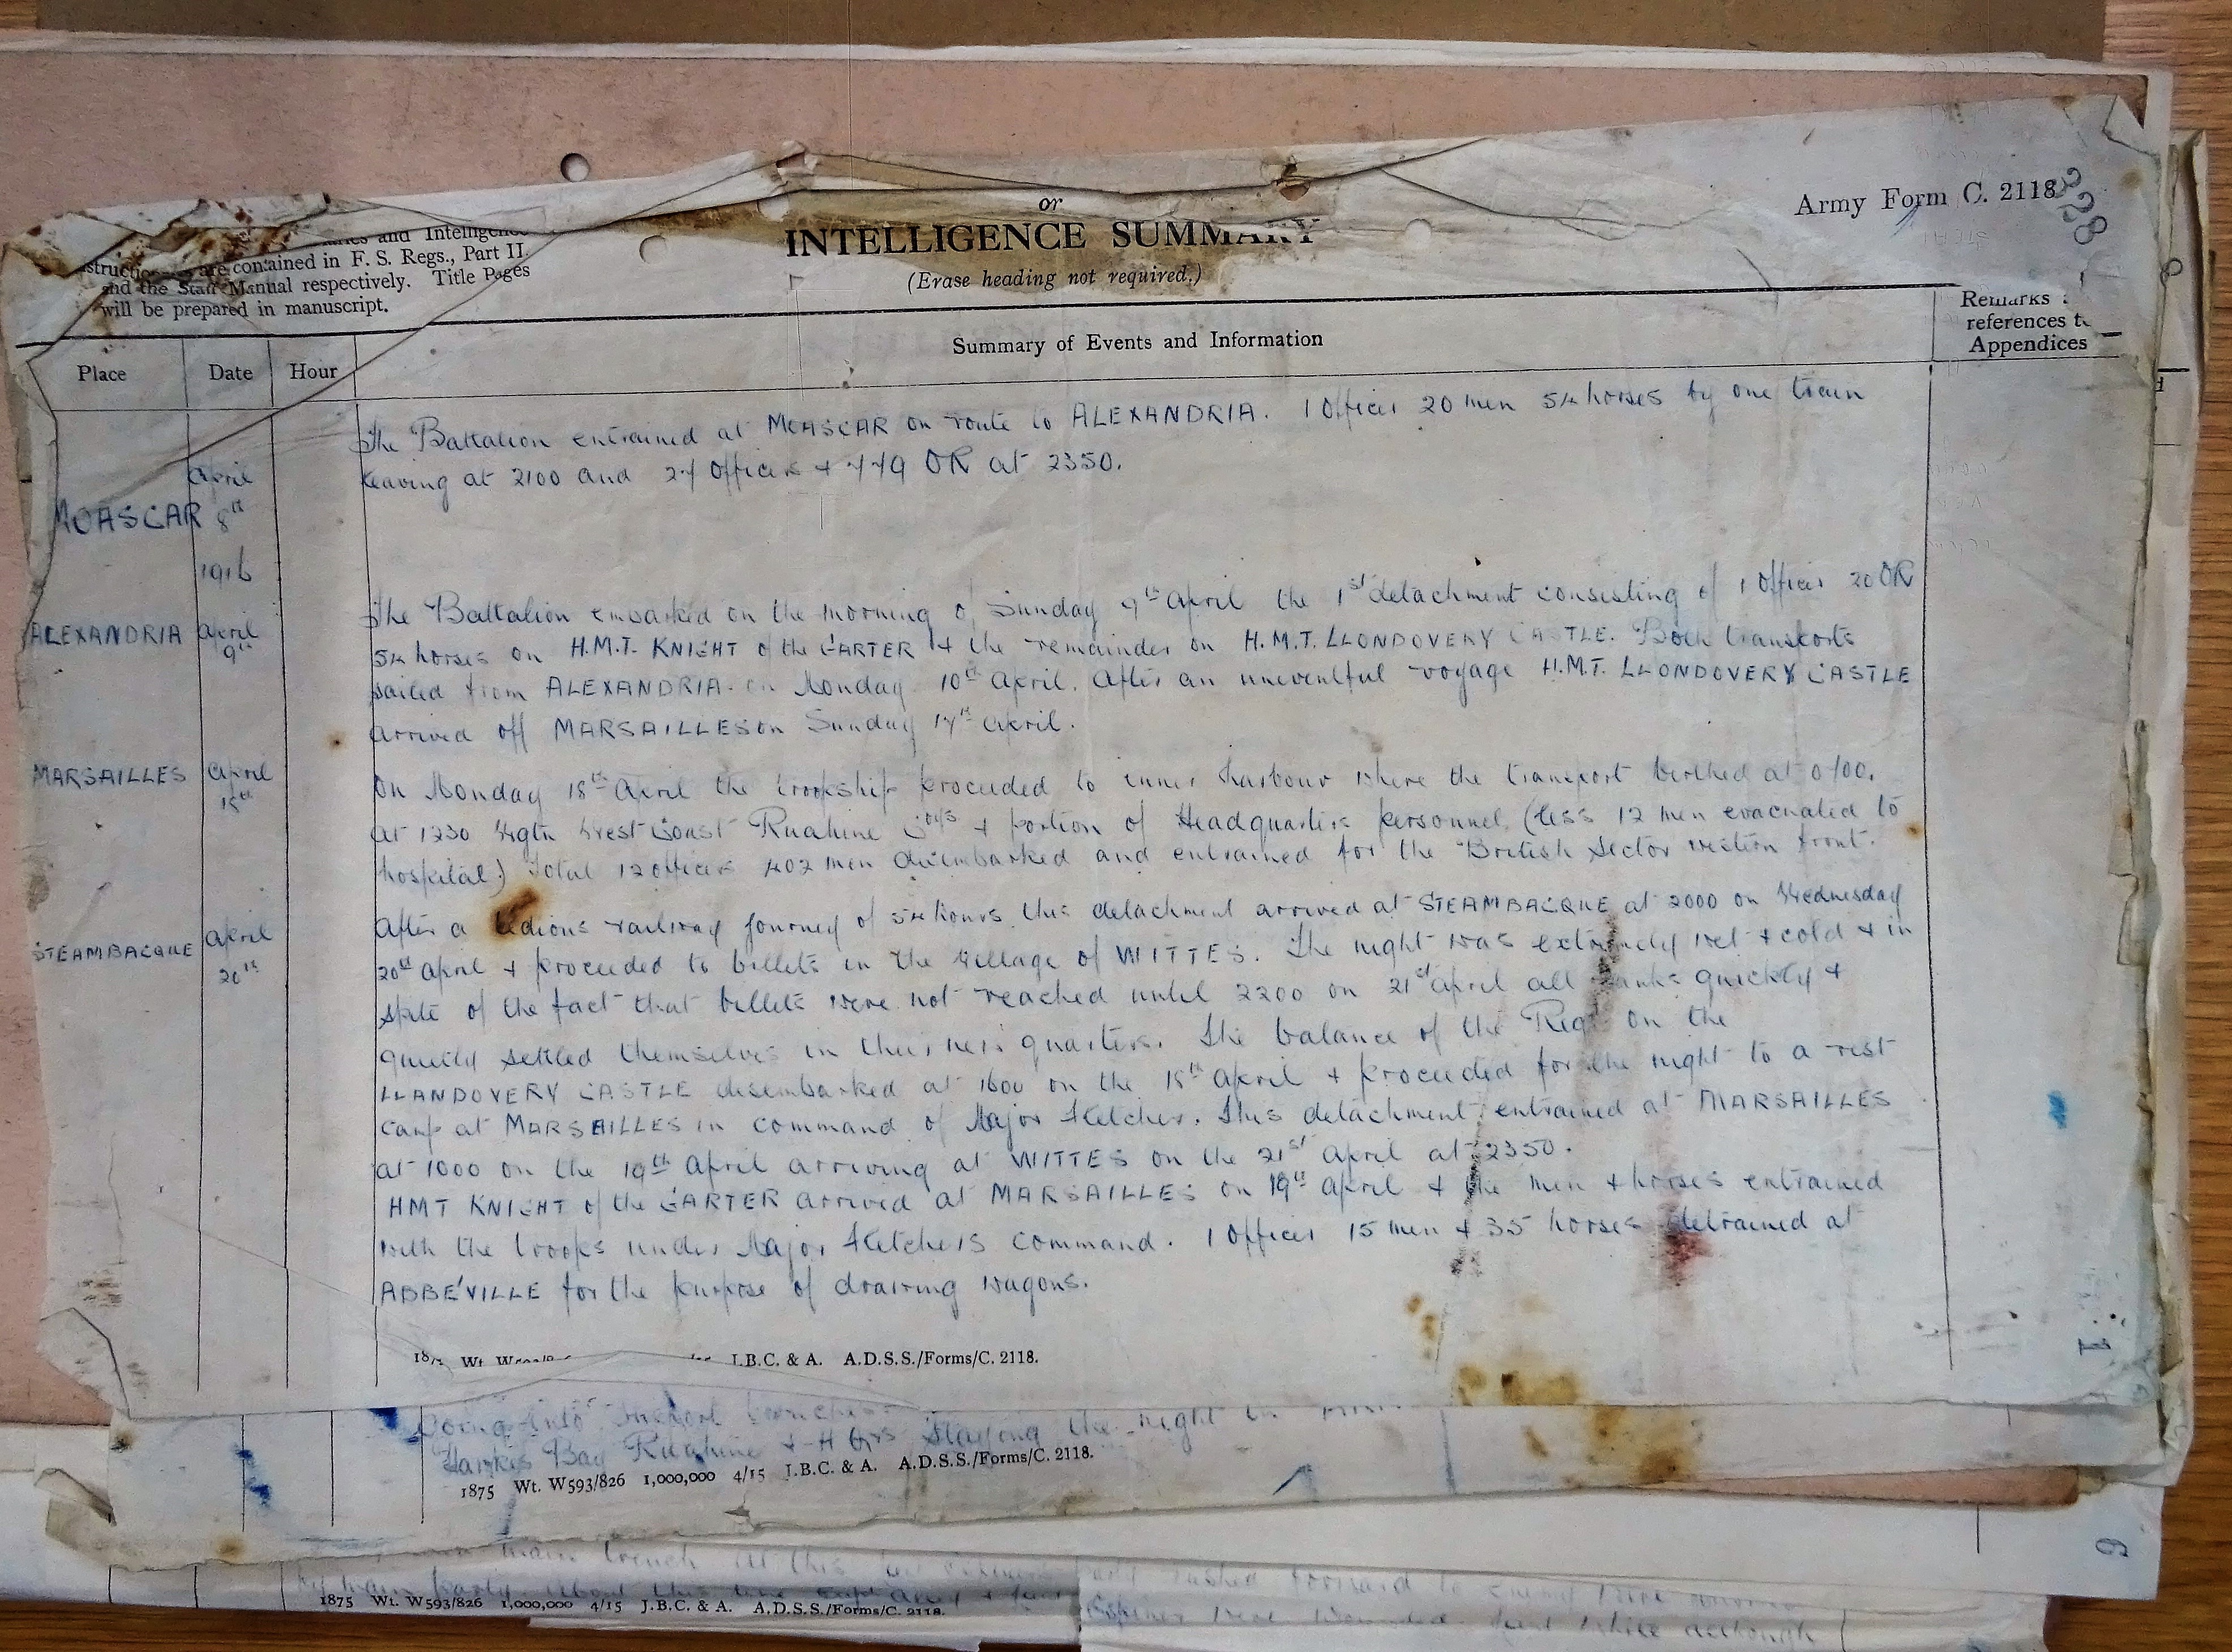 Army Form C. 2118
328
or
INTELLIGENCE SUMMARY
(Erase heading not required.)
and Intelligence
are contained in F. S. Regs., Part II.
and the Staff Manual respectively. Title Pages
will be prepared in manuscript.
Place Date Hour Summary of Events and Information Remarks
references to
Appendices
MOASCAR April 8th 1916
The Battalion entrained at MOASCAR on route to ALEXANDRIA. 1 Officer 20 men 54 horses by one train
leaving at 2100 and 27 Officers + 779 OR at 2350.
ALEXANDRIA April 9th
The Battalion embarked on the morning of Sunday 9th April the 1st detachment consisting of 1 Officer 20 OR
54 horses on H.M.T. KNIGHT of the GARTER + the remainder on H.M.T. LLONDOVERY CASTLE. Both transports
sailed from ALEXANDRIA on Monday 10th April. After an uneventful voyage H.M.T. LLONDOVERY CASTLE
arrived off MARSAILLES on Sunday 17th April.
MARSAILLES April 18th
On Monday 18th April the troopship proceeded to inner harbour where the transport berthed at 0700.
At 1230 Wgtn West Coast Ruahine Coys + portion of Headquarters personnel (less 12 men evacuated to
hospital) Total 12 officers 402 men disembarked and entrained for the British Sector western front.
STEAMBACQUE April 20th
After a tedious railway journey of 54 hours this detachment arrived at STEAMBACQUE at 2000 on Wednesday
20th April + proceeded to billets in the village of WITTES. The night was extremely wet + cold + in
spite of the fact that billets were not reached until 2200 on 21st April all ranks quickly +
quietly settled themselves in their new quarters. The balance of the Regt on the
LLANDOVERY CASTLE disembarked at 1600 on the 18th April + proceeded for the night to a rest
camp at MARSEILLES in command of Major Fletcher. This detachment entrained at MARSAILLES
at 1000 on the 19th April arriving at WITTES on the 21st April at 2350.
HMT KNIGHT of the GARTER arrived at MARSAILLES on 19th April + the men + horses entrained
with the troops under Major Fletchers command. 1 Officer 15 men + 35 horses detrained at
ABBÉVILLE for the purpose of drawing wagons.
J.B.C. & A. A.D.S.S./Forms/C. 2118.
Going into Support trenches
Hawkes Bay Ruahine + H Qrs staying the night in
1875 Wt. W593/826 1,000,000 4/15 J.B.C. & A. A.D.S.S./Forms/C. 2118.
main trench At this
1875 Wt. W593/826 1,000,000 4/15 J.B.C. & A. A.D.S.S./Forms/C. 2118.
rushed forward to enemy